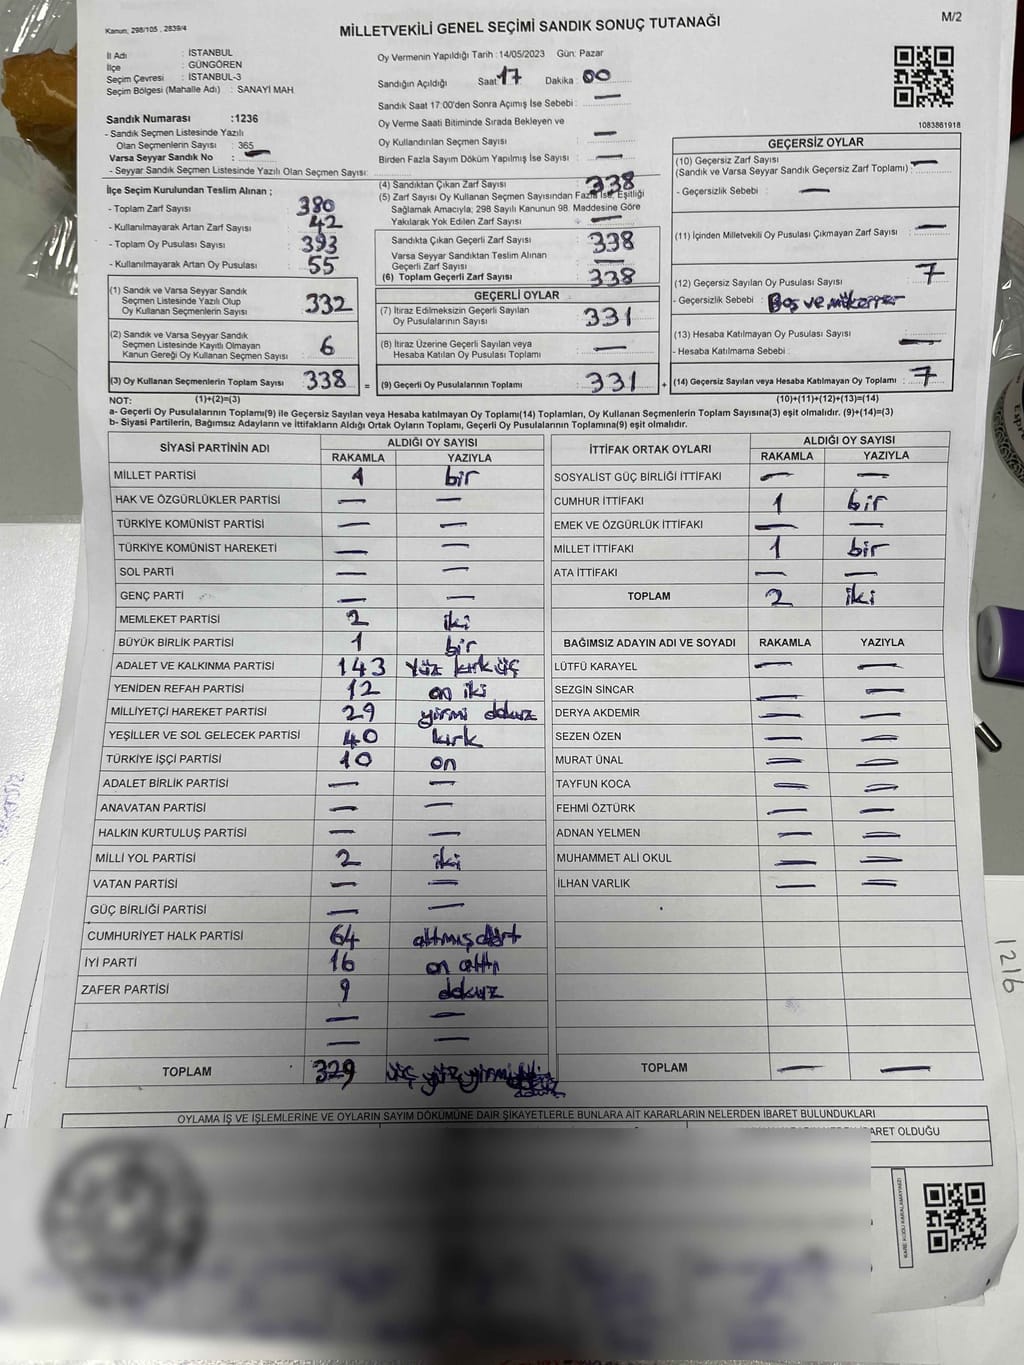 Kanun; 298/105 , 2839/4
MİLLETVEKİLİ GENEL SEÇİMİ SANDIK SONUÇ TUTANAĞI
M/2
İl Adı : İSTANBUL
İlçe : GÜNGÖREN
Seçim Çevresi : İSTANBUL-3
Seçim Bölgesi (Mahalle Adı) : SANAYİ MAH
Sandık Numarası :1236
- Sandık Seçmen Listesinde Yazılı
Olan Seçmenlerin Sayısı : 365
Varsa Seyyar Sandık No : —
- Seyyar Sandık Seçmen Listesinde Yazılı Olan Seçmen Sayısı :
Oy Vermenin Yapıldığı Tarih : 14/05/2023 Gün: Pazar
Sandığın Açıldığı Saat 17 Dakika : 00
Sandık Saat 17:00'den Sonra Açımış İse Sebebi : —
Oy Verme Saati Bitiminde Sırada Bekleyen ve
Oy Kullandırılan Seçmen Sayısı : —
Birden Fazla Sayım Döküm Yapılmış İse Sayısı : —
1083861918
İlçe Seçim Kurulundan Teslim Alınan ;
- Toplam Zarf Sayısı : 380
- Kullanılmayarak Artan Zarf Sayısı : 42
- Toplam Oy Pusulası Sayısı : 393
- Kullanılmayarak Artan Oy Pusulası : 55
(1) Sandık ve Varsa Seyyar Sandık
Seçmen Listesinde Yazılı Olup
Oy Kullanan Seçmenlerin Sayısı : 332
(2) Sandık ve Varsa Seyyar Sandık
Seçmen Listesinde Kayıtlı Olmayan
Kanun Gereği Oy Kullanan Seçmen Sayısı : 6
(3) Oy Kullanan Seçmenlerin Toplam Sayısı : 338 =
(4) Sandıktan Çıkan Zarf Sayısı : 338
(5) Zarf Sayısı Oy Kullanan Seçmen Sayısından Fazla İse, Eşitliği
Sağlamak Amacıyla; 298 Sayılı Kanunun 98. Maddesine Göre
Yakılarak Yok Edilen Zarf Sayısı : —
Sandıkta Çıkan Geçerli Zarf Sayısı : 338
Varsa Seyyar Sandıktan Teslim Alınan
Geçerli Zarf Sayısı : —
(6) Toplam Geçerli Zarf Sayısı : 338
GEÇERLİ OYLAR
(7) İtiraz Edilmeksizin Geçerli Sayılan
Oy Pusulalarının Sayısı : 331
(8) İtiraz Üzerine Geçerli Sayılan veya
Hesaba Katılan Oy Pusulası Toplamı : —
(9) Geçerli Oy Pusulalarının Toplamı : 331 +
GEÇERSİZ OYLAR
(10) Geçersiz Zarf Sayısı
(Sandık ve Varsa Seyyar Sandık Geçersiz Zarf Toplamı) : —
- Geçersizlik Sebebi : —
(11) İçinden Milletvekili Oy Pusulası Çıkmayan Zarf Sayısı : —
(12) Geçersiz Sayılan Oy Pusulası Sayısı : 7
- Geçersizlik Sebebi : Boş ve mükerrer
(13) Hesaba Katılmayan Oy Pusulası Sayısı : —
- Hesaba Katılmama Sebebi :
(14) Geçersiz Sayılan veya Hesaba Katılmayan Oy Toplamı : 7
NOT: (1)+(2)=(3) (10)+(11)+(12)+(13)=(14)
a- Geçerli Oy Pusulalarının Toplamı(9) ile Geçersiz Sayılan veya Hesaba katılmayan Oy Toplamı(14) Toplamları, Oy Kullanan Seçmenlerin Toplam Sayısına(3) eşit olmalıdır. (9)+(14)=(3)
b- Siyasi Partilerin, Bağımsız Adayların ve İttifakların Aldığı Ortak Oyların Toplamı, Geçerli Oy Pusulalarının Toplamına(9) eşit olmalıdır.
SİYASİ PARTİNİN ADI ALDIĞI OY SAYISI
RAKAMLA YAZIYLA
MİLLET PARTİSİ 1 bir
HAK VE ÖZGÜRLÜKLER PARTİSİ — —
TÜRKİYE KOMÜNİST PARTİSİ — —
TÜRKİYE KOMÜNİST HAREKETİ — —
SOL PARTİ — —
GENÇ PARTİ — —
MEMLEKET PARTİSİ 2 iki
BÜYÜK BİRLİK PARTİSİ 1 bir
ADALET VE KALKINMA PARTİSİ 143 Yüz kırk üç
YENİDEN REFAH PARTİSİ 12 on iki
MİLLİYETÇİ HAREKET PARTİSİ 29 yirmi dokuz
YEŞİLLER VE SOL GELECEK PARTİSİ 40 kırk
TÜRKİYE İŞÇİ PARTİSİ 10 on
ADALET BİRLİK PARTİSİ — —
ANAVATAN PARTİSİ — —
HALKIN KURTULUŞ PARTİSİ — —
MİLLİ YOL PARTİSİ 2 iki
VATAN PARTİSİ — —
GÜÇ BİRLİĞİ PARTİSİ — —
CUMHURİYET HALK PARTİSİ 64 altmış dört
İYİ PARTİ 16 on altı
ZAFER PARTİSİ 9 dokuz
— —
— —
TOPLAM 329 üç yüz yirmi dokuz
İTTİFAK ORTAK OYLARI ALDIĞI OY SAYISI
RAKAMLA YAZIYLA
SOSYALİST GÜÇ BİRLİĞİ İTTİFAKI — —
CUMHUR İTTİFAKI 1 bir
EMEK VE ÖZGÜRLÜK İTTİFAKI — —
MİLLET İTTİFAKI 1 bir
ATA İTTİFAKI — —
TOPLAM 2 iki
BAĞIMSIZ ADAYIN ADI VE SOYADI RAKAMLA YAZIYLA
LÜTFÜ KARAYEL — —
SEZGİN SİNCAR — —
DERYA AKDEMİR — —
SEZEN ÖZEN — —
MURAT ÜNAL — —
TAYFUN KOCA — —
FEHMİ ÖZTÜRK — —
ADNAN YELMEN — —
MUHAMMET ALİ OKUL — —
İLHAN VARLIK — —
TOPLAM — —
OYLAMA İŞ VE İŞLEMLERİNE VE OYLARIN SAYIM DÖKÜMÜNE DAİR ŞİKAYETLERLE BUNLARA AİT KARARLARIN NELERDEN İBARET BULUNDUKLARI
ARET OLDUĞU
KARE KODU KARALAMAYINIZ!
1216